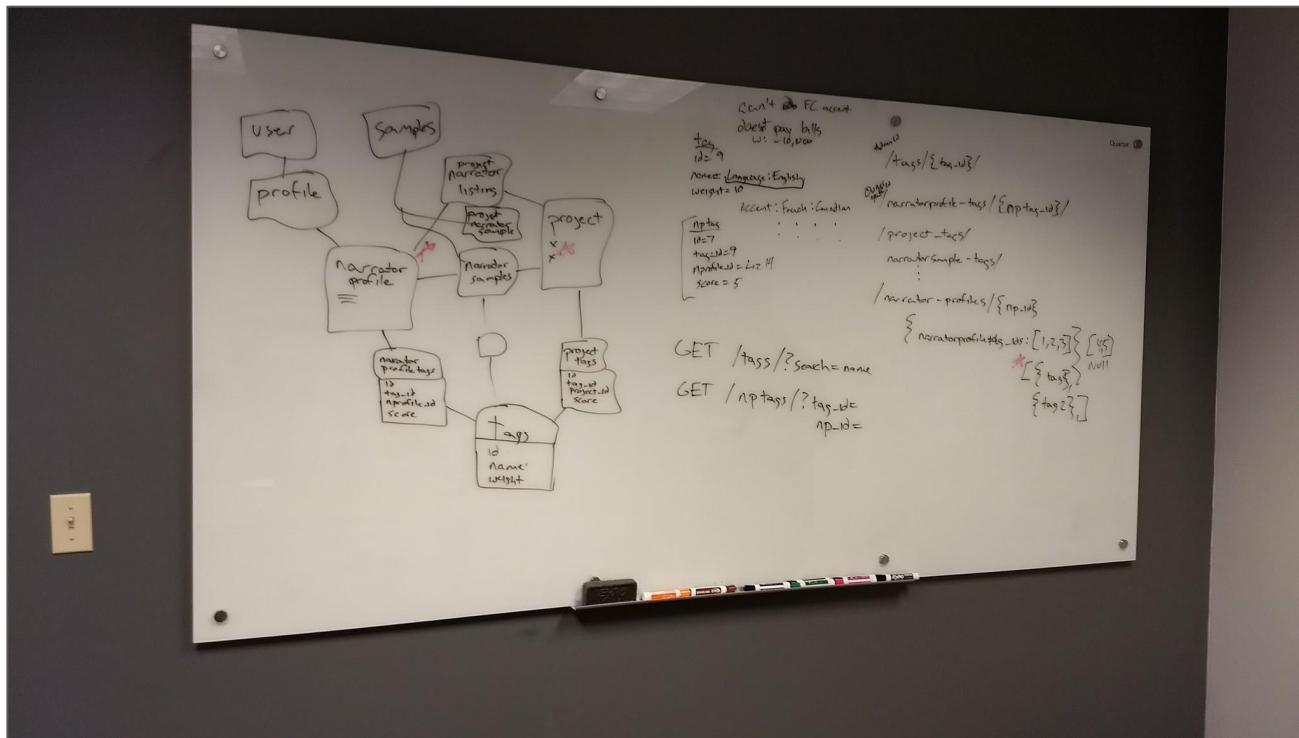 user
samples
profile
project
narrator
listing
project
narrator
sample
project
x
x
narrator
profile
narrator
samples
narrator
profile tags
id
tag_id
nprofile_id
score
project
tags
id
tag_id
project_id
score
tags
id
name
weight
can't do FC accent
doesn't pay bills
w: -10,000
tag
id = 9
name = Language: English
weight = 10
Accent: French: Canadian
nptag
id=7
tag_id=9
score = 5
GET /tags/?search=name
GET /nptags/?tag_id=
np_id=
/tags/{tag_id}/
/narratorprofile-tags/{nptag_id}/
/project_tags/
narratorsample-tags/
/narrator-profiles/{np_id}
{ narratorprofiletag_ids: [1,2,3] }
null
[{tag},
{tag2},]
Quartet
EXPO